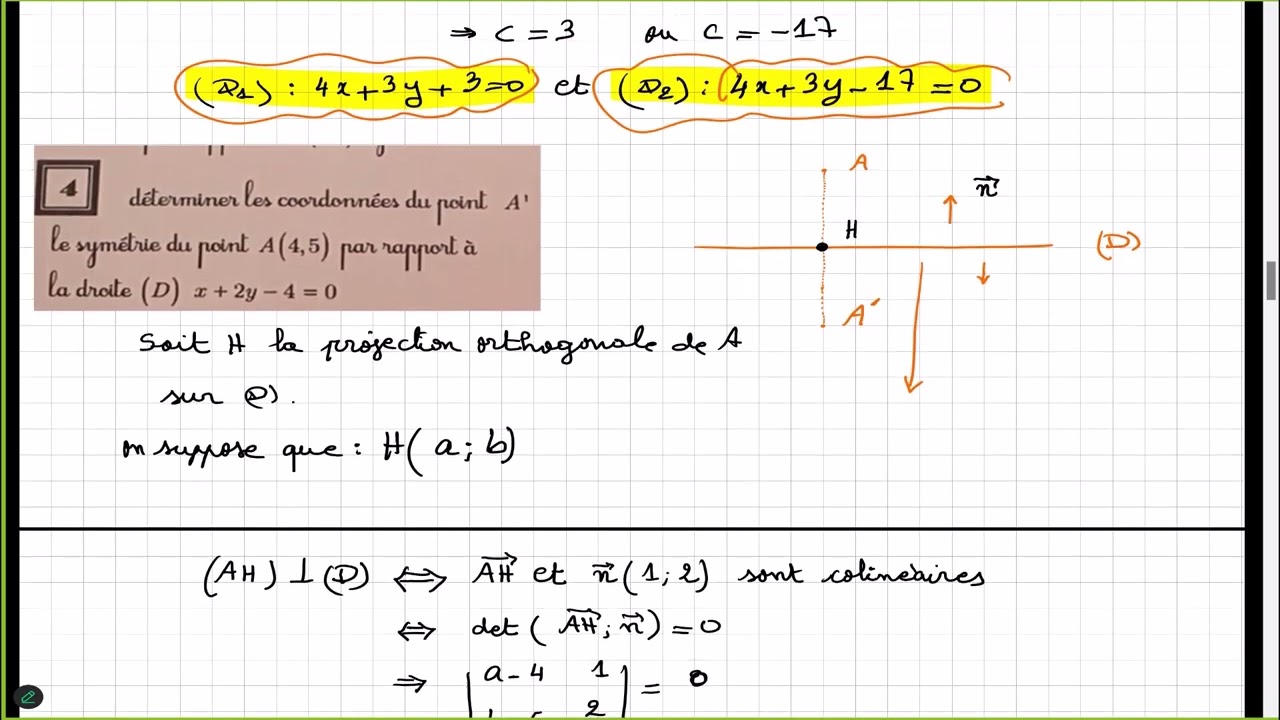 ⇒ c = 3 ou c = -17
(D₁) : 4x+3y+3=0 et (D₂) : 4x+3y-17=0
4 déterminer les coordonnées du point A'
le symétrie du point A(4,5) par rapport à
la droite (D) x + 2y - 4 = 0
A
n⃗
H
(D)
A'
Soit H la projection orthogonale de A
sur (D).
on suppose que : H( a ; b)
(AH) ⊥ (D) ⟺ AH⃗ et n⃗(1;2) sont colinéaires
⟺ det (AH⃗; n⃗) = 0
⇒ | a-4 1 | = 0
2